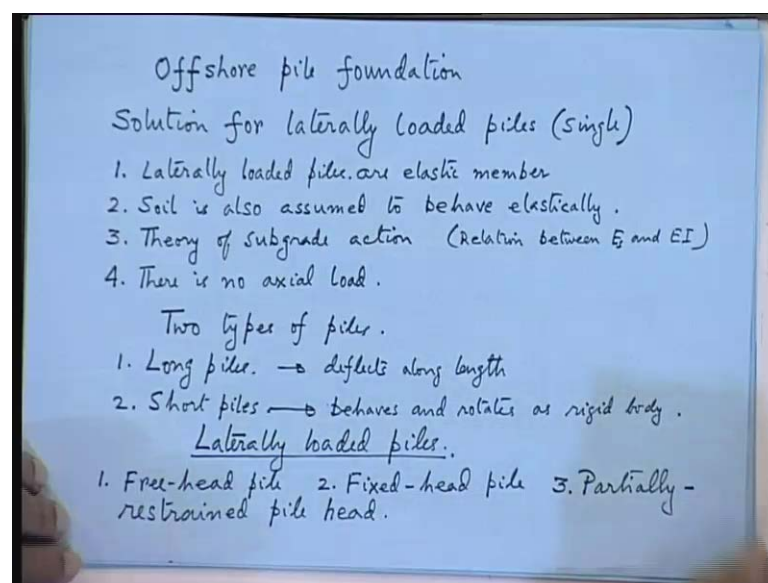 Offshore pile foundation
Solution for laterally loaded piles (single)
1. Laterally loaded piles. are elastic member
2. Soil is also assumed to behave elastically.
3. Theory of subgrade action (Relation between Es and EI)
4. There is no axial load.
Two types of piles.
1. Long piles. → deflects along length
2. Short piles → behaves and rotates as rigid body.
Laterally loaded piles.
1. Free-head pile 2. Fixed-head pile 3. Partially-
restrained pile head.